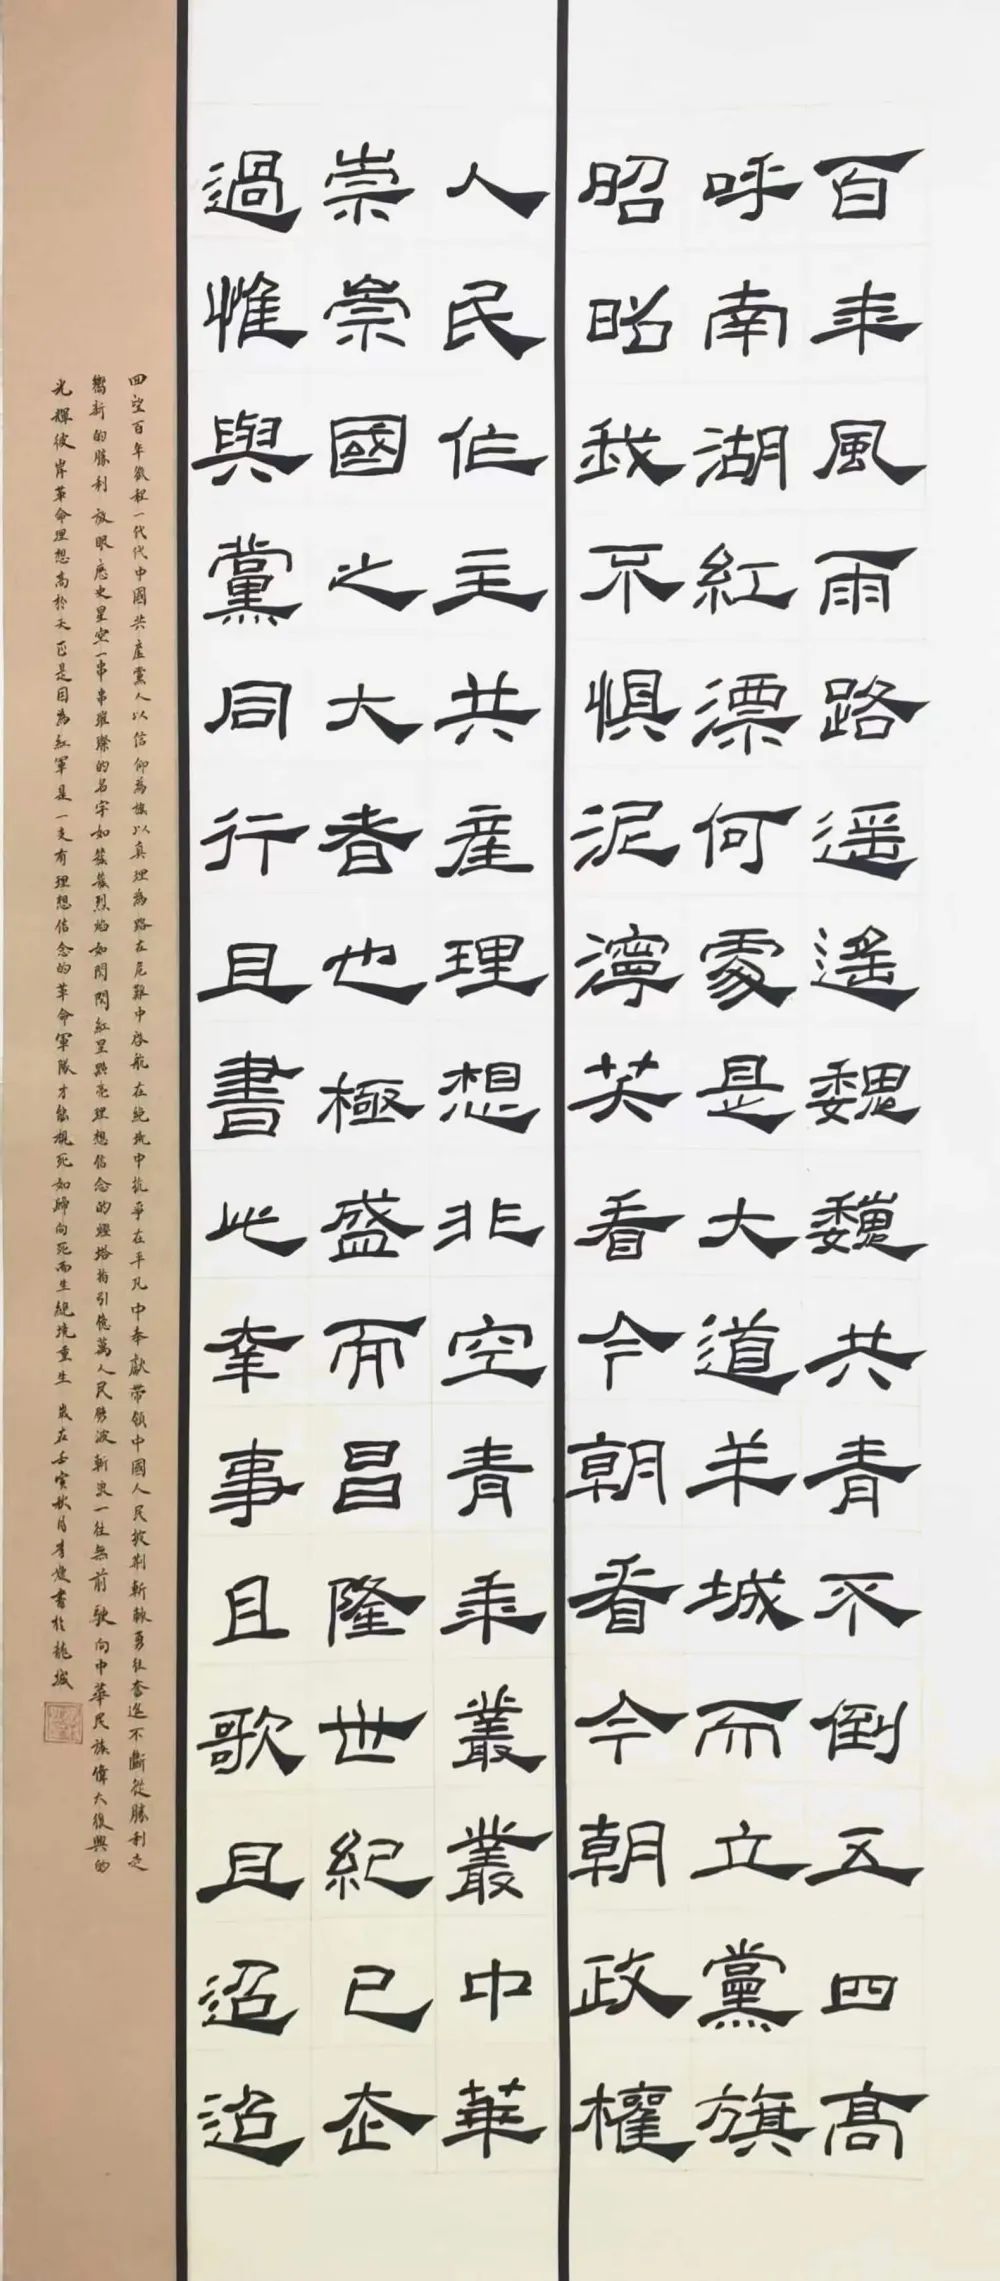 百年風雨路遥遙魏巍共青不倒五四高
呼南湖紅漂何處是大道羊城而立黨旗
昭昭我不懼泥濘笑看今朝看今朝政權
人民作主共產理想非空青年叢叢中華
崇崇國之大者也極盛而昌隆世紀已企
過惟與黨同行且書此幸事且歌且迢迢
回望百年征程一代代中國共產黨人以信仰為旗以真理為路在危難中啓航在絶境中抗爭在平凡中奉獻帶領中國人民披荆斬棘勇往奮進不斷從勝利走
嚮新的勝利放眼歷史星空一串串璀璨的名字如簇簇烈焰如閃閃紅星點亮理想信念的燈塔指引億萬人民劈波斬浪一往無前駛向中華民族偉大復興的
光輝彼岸革命理想高於天正是因為紅軍是一支有理想信念的革命軍隊才能視死如歸向死而生絶境重生 歲在壬寅秋月書於龍城